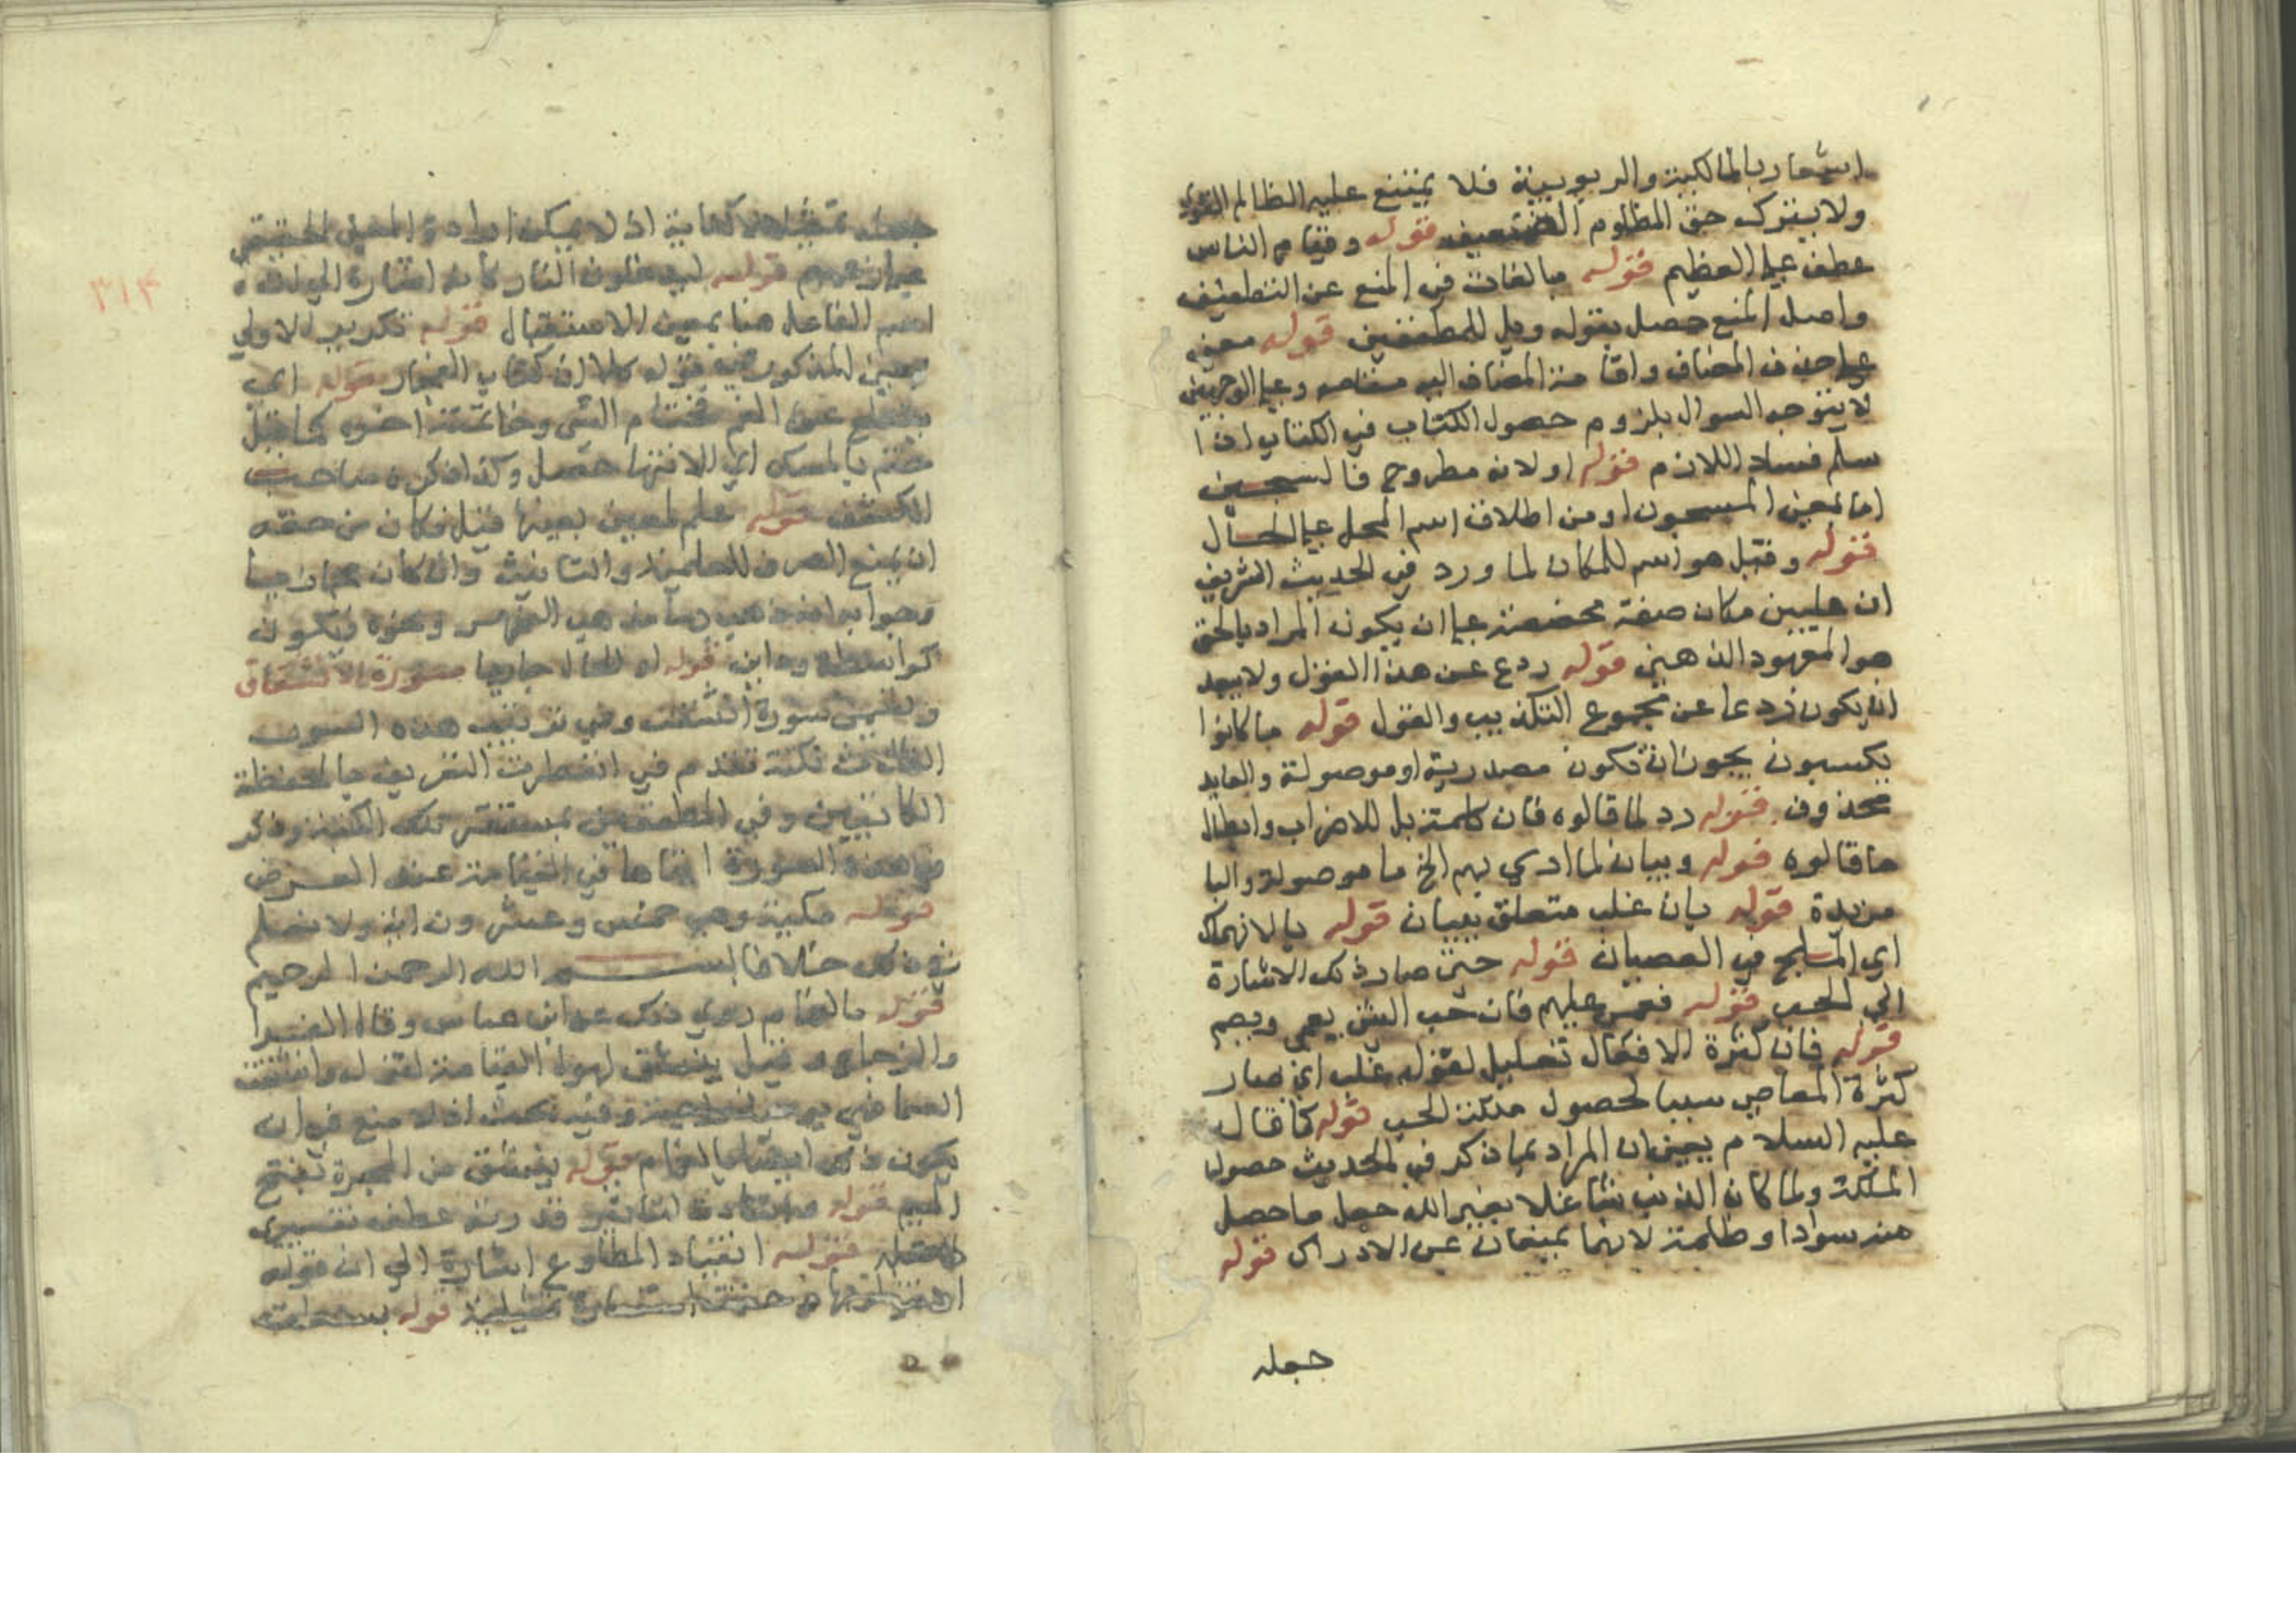 اشعار بالمالكية والربوبية فلا يمتنع عليه الظالم القوي
ولا يترك حق المظلوم الضعيف قوله وقيام الناس
عطف على العظيم قوله مبالغات في المنع عن التطفيف
واصل المنع حصل بقوله ويل للمطففين قوله معنى
على حذف المضاف واقامة المضاف اليه مقامه وعلى الوجهين
لا يتوجه السوال بلزوم حصول الكتاب في الكتاب اذا
سلم فساد اللازم قوله او لانه مطروح فالسجين
اما بمعنى المسجون او من اطلاق اسم المحل على الحال
قوله وقيل هو اسم للمكان لما ورد في الحديث الشريف
ان عليين مكان صفة مخصصة على ان يكون المراد بالحق
هو المعهود الذهني قوله ردع عن هذا القول ولا يبعد
ان يكون ردعا عن مجموع التكذيب والقول قوله ما كانوا
يكسبون يجوز ان تكون مصدرية او موصولة والعايد
محذوف قوله رد لما قالوه فان كلمة بل للاضراب وابطال
ما قالوه قوله وبيان لما ادي بهم الخ ما موصولة والبا
مزيدة قوله بان غلب متعلق ببيان قوله بالانهماك
اي في العصيان قوله حتى صار ذلك الاشارة
الى الحب قوله فعمي عليهم فان حب الشي يعمي ويصم
قوله فان كثرة الافعال تعليل لقوله غلب اي صار
كثرة المعاصي سببا لحصول ملكة الحب قوله كما قال
عليه السلام يعني ان المراد بما ذكر في الحديث حصول
الملكة ولما كان الذنب شاغلا بغير الله جعل ما حصل
منه سوادا وظلمة لانهما يمنعان عن الادراك قوله
جعله
٣١٣
جعله تمثيلا لا كناية اذ لا يمكن ارادة المعنى الحقيقي
على زعمهم قوله ليدخلون النار كانه اشارة الى ان
اسم الفاعل هنا بمعنى الاستقبال قوله تكرير للاولى
معنى المذكور في قوله كلا ان كتاب الفجار قوله اي
عن الفم فختام الشي وخاتمته اخره كما قيل
ختم بالمسك اي للانتها حصل وكذا ذكره صاحب
الكشف قوله علم لعين بعينها قيل فكان من حقه
ان يمنع الصرف للعلمية والتانيث وان كان
وجوابه انه ذهب مذهب ونحوه فيكون
كواسطة ودابق قوله او الحال جاريا سورة الانشقاق
وتسمى سورة انشقت وفي ترتيب هذه السور
الثلاث نكتة تقدم في انفطرت التعريف بالحفظة
الكاتبين وفي المطففين بمستقر تلك الكتبة وذكر
في هذه السورة ايتاها في القيامة عند العرض
قوله مكية وهي خمس وعشرون اية ولا نعلم
في ذلك خلافا بسم الله الرحمن الرحيم
قوله بالغمام روي ذلك عن ابن عباس وقال الفرا
والزجاج قيل ينشق لهول القيامة لقوله وانشقت
السما فهي يومئذ واهية وفيه بحث اذ لا منع في ان
يكون ذلك ايضا بالغمام قوله ينشق من المجرة بفتح
الميم قوله تاثير قدرته عطف تفسيري
قوله انقياد المطاوع اشارة الى ان قوله
اذنت لربها وحقت استعارة تمثيلية قوله بسطت